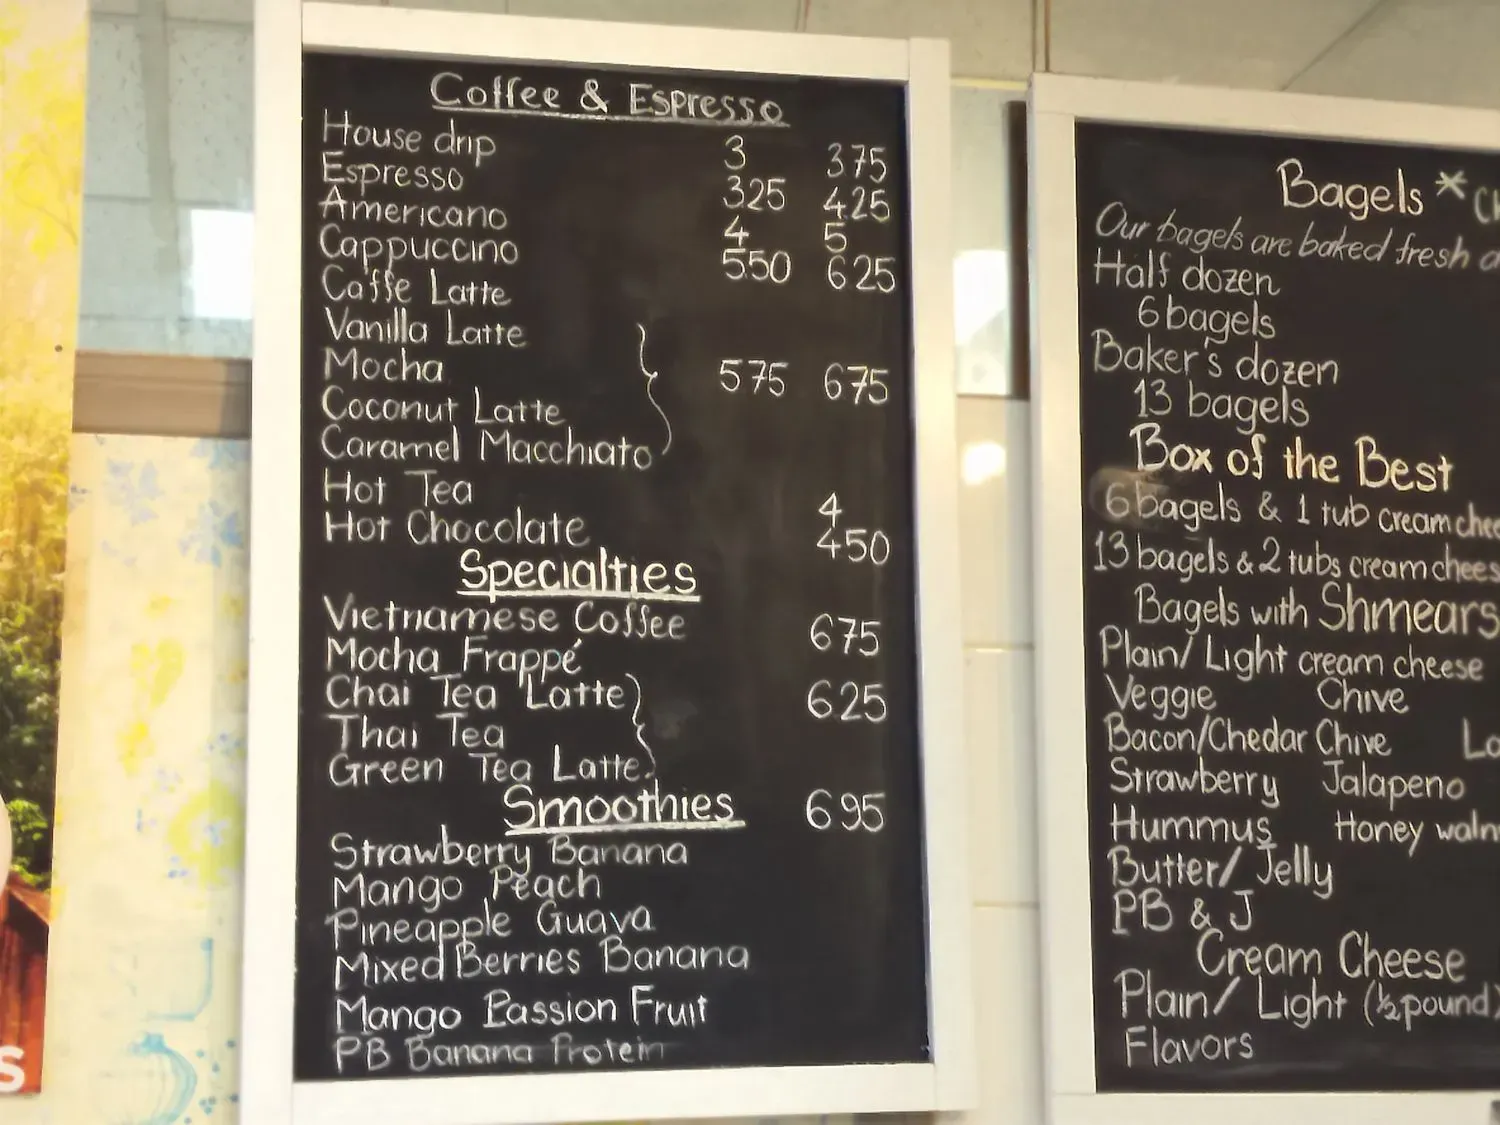 Coffee & Espresso
House drip 3 375
Espresso 325 425
Americano 4 5
Cappuccino 550 625
Caffe Latte
Vanilla Latte
Mocha 575 675
Coconut Latte
Caramel Macchiato
Hot Tea 4
Hot Chocolate 450
Specialties
Vietnamese Coffee 675
Mocha Frappé
Chai Tea Latte 625
Thai Tea
Green Tea Latte
Smoothies 695
Strawberry Banana
Mango Peach
Pineapple Guava
Mixed Berries Banana
Mango Passion Fruit
PB Banana Protein
Bagels *
Our bagels are baked fresh
Half dozen
6 bagels
Baker's dozen
13 bagels
Box of the Best
6 bagels & 1 tub cream chee
13 bagels & 2 tubs cream chees
Bagels with Shmears
Plain/ Light cream cheese
Veggie Chive
Bacon/Chedar Chive Lo
Strawberry Jalapeno
Hummus Honey waln
Butter/ Jelly
PB & J
Cream Cheese
Plain/ Light (½ pound)
Flavors
S